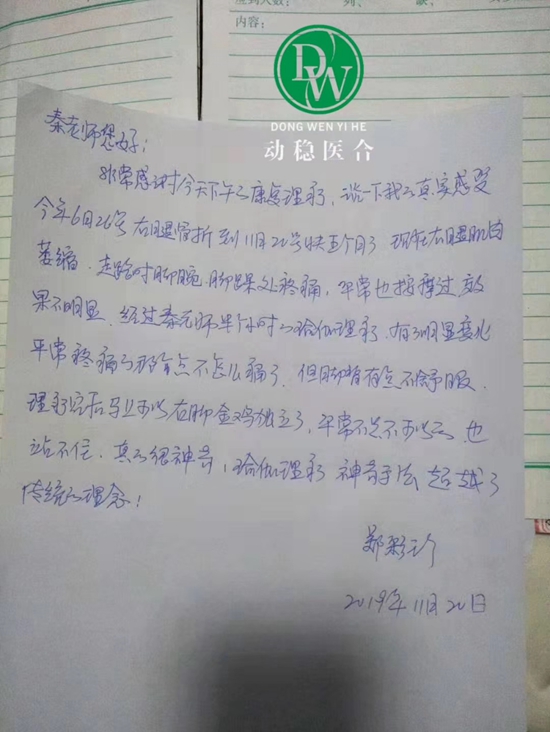 签到人数:
列、
缺、
内容:
DW
DONG WEN YI HE
动稳医合
秦老师您好:
非常感谢今天下午的康复理疗,谈一下我的真实感受
今年6月26号右腿骨折到11月20号快五个月了 现在右腿肌肉
萎缩.走路时脚腕.脚踝处疼痛,平常也按摩过效
果不明显.经过秦老师半个小时的瑜伽理疗.有了明显变化
平常疼痛的那个点不怎么痛了.但脚背有点不舒服.
理疗完后马上可以右脚金鸡独立了,平常不是不可以的 也
站不住.真的很神奇,瑜伽理疗 神奇手法 超越了
传统的理念!
郑彩珍
2019年11月20日